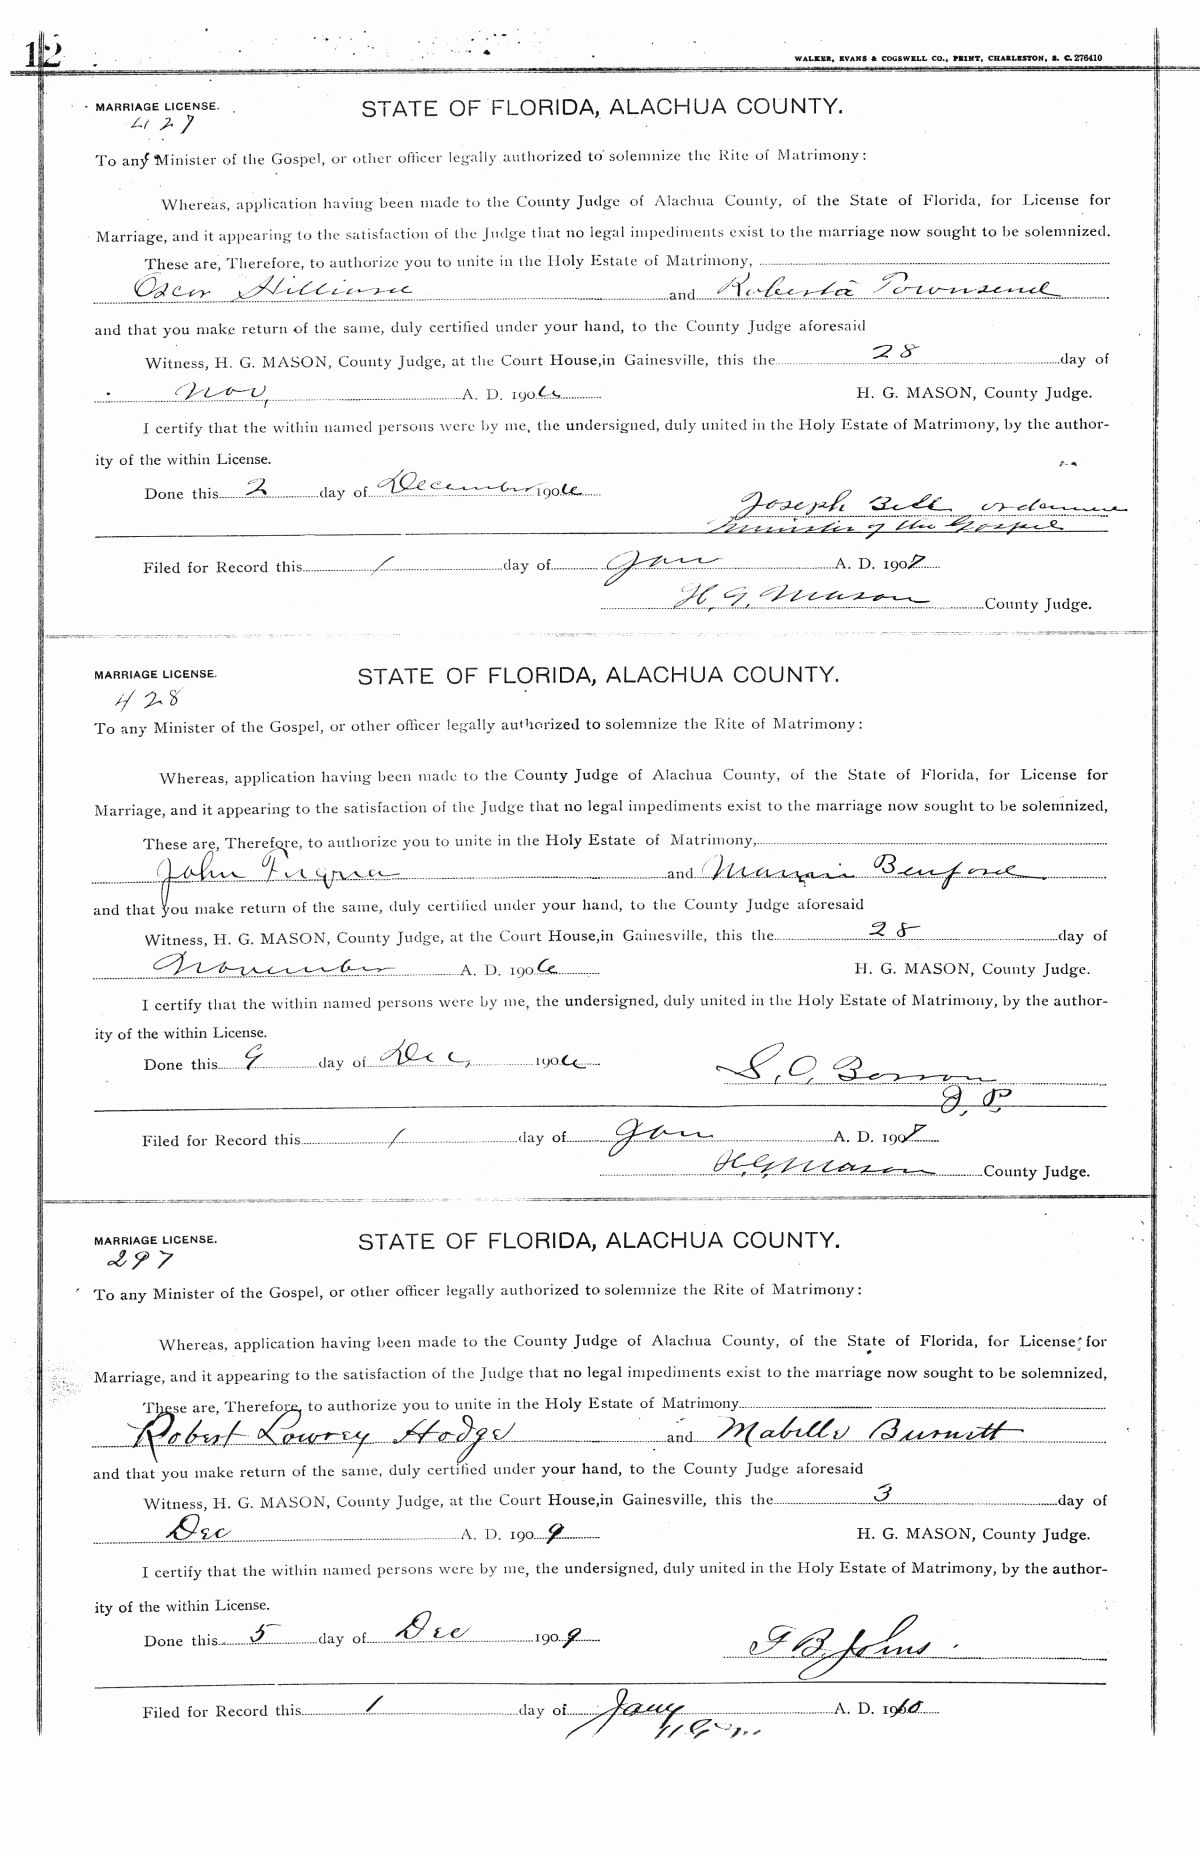 12
WALKER, EVANS & COGSWELL CO., PRINT, CHARLESTON, S. C. 276410
MARRIAGE LICENSE. STATE OF FLORIDA, ALACHUA COUNTY.
427
To any Minister of the Gospel, or other officer legally authorized to solemnize the Rite of Matrimony:
Whereas, application having been made to the County Judge of Alachua County, of the State of Florida, for License for
Marriage, and it appearing to the satisfaction of the Judge that no legal impediments exist to the marriage now sought to be solemnized.
These are, Therefore, to authorize you to unite in the Holy Estate of Matrimony,
Oscar and Roberta Townsend
and that you make return of the same, duly certified under your hand, to the County Judge aforesaid
Witness, H. G. MASON, County Judge, at the Court House, in Gainesville, this the 28 day of
Nov, A. D. 1906 H. G. MASON, County Judge.
I certify that the within named persons were by me, the undersigned, duly united in the Holy Estate of Matrimony, by the author-
ity of the within License.
Done this 2 day of December 1906
Joseph Bell
Minister of the Gospel
Filed for Record this 1 day of Jan A. D. 1907
H. G. Mason County Judge.
MARRIAGE LICENSE. STATE OF FLORIDA, ALACHUA COUNTY.
428
To any Minister of the Gospel, or other officer legally authorized to solemnize the Rite of Matrimony:
Whereas, application having been made to the County Judge of Alachua County, of the State of Florida, for License for
Marriage, and it appearing to the satisfaction of the Judge that no legal impediments exist to the marriage now sought to be solemnized,
These are, Therefore, to authorize you to unite in the Holy Estate of Matrimony,
John Fuqua and Benford
and that you make return of the same, duly certified under your hand, to the County Judge aforesaid
Witness, H. G. MASON, County Judge, at the Court House, in Gainesville, this the 28 day of
November A. D. 1906 H. G. MASON, County Judge.
I certify that the within named persons were by me, the undersigned, duly united in the Holy Estate of Matrimony, by the author-
ity of the within License.
Done this 9 day of Dec, 1906
S. O.
J. P.
Filed for Record this 1 day of Jan A. D. 1907
H. G. Mason County Judge.
MARRIAGE LICENSE. STATE OF FLORIDA, ALACHUA COUNTY.
297
To any Minister of the Gospel, or other officer legally authorized to solemnize the Rite of Matrimony:
Whereas, application having been made to the County Judge of Alachua County, of the State of Florida, for License for
Marriage, and it appearing to the satisfaction of the Judge that no legal impediments exist to the marriage now sought to be solemnized,
These are, Therefore, to authorize you to unite in the Holy Estate of Matrimony
Robert Lowrey Hodge and Mabelle Burnett
and that you make return of the same, duly certified under your hand, to the County Judge aforesaid
Witness, H. G. MASON, County Judge, at the Court House, in Gainesville, this the 3 day of
Dec A. D. 1909 H. G. MASON, County Judge.
I certify that the within named persons were by me, the undersigned, duly united in the Holy Estate of Matrimony, by the author-
ity of the within License.
Done this 5 day of Dec 1909
F B Johns
Filed for Record this 1 day of Jany A. D. 1910